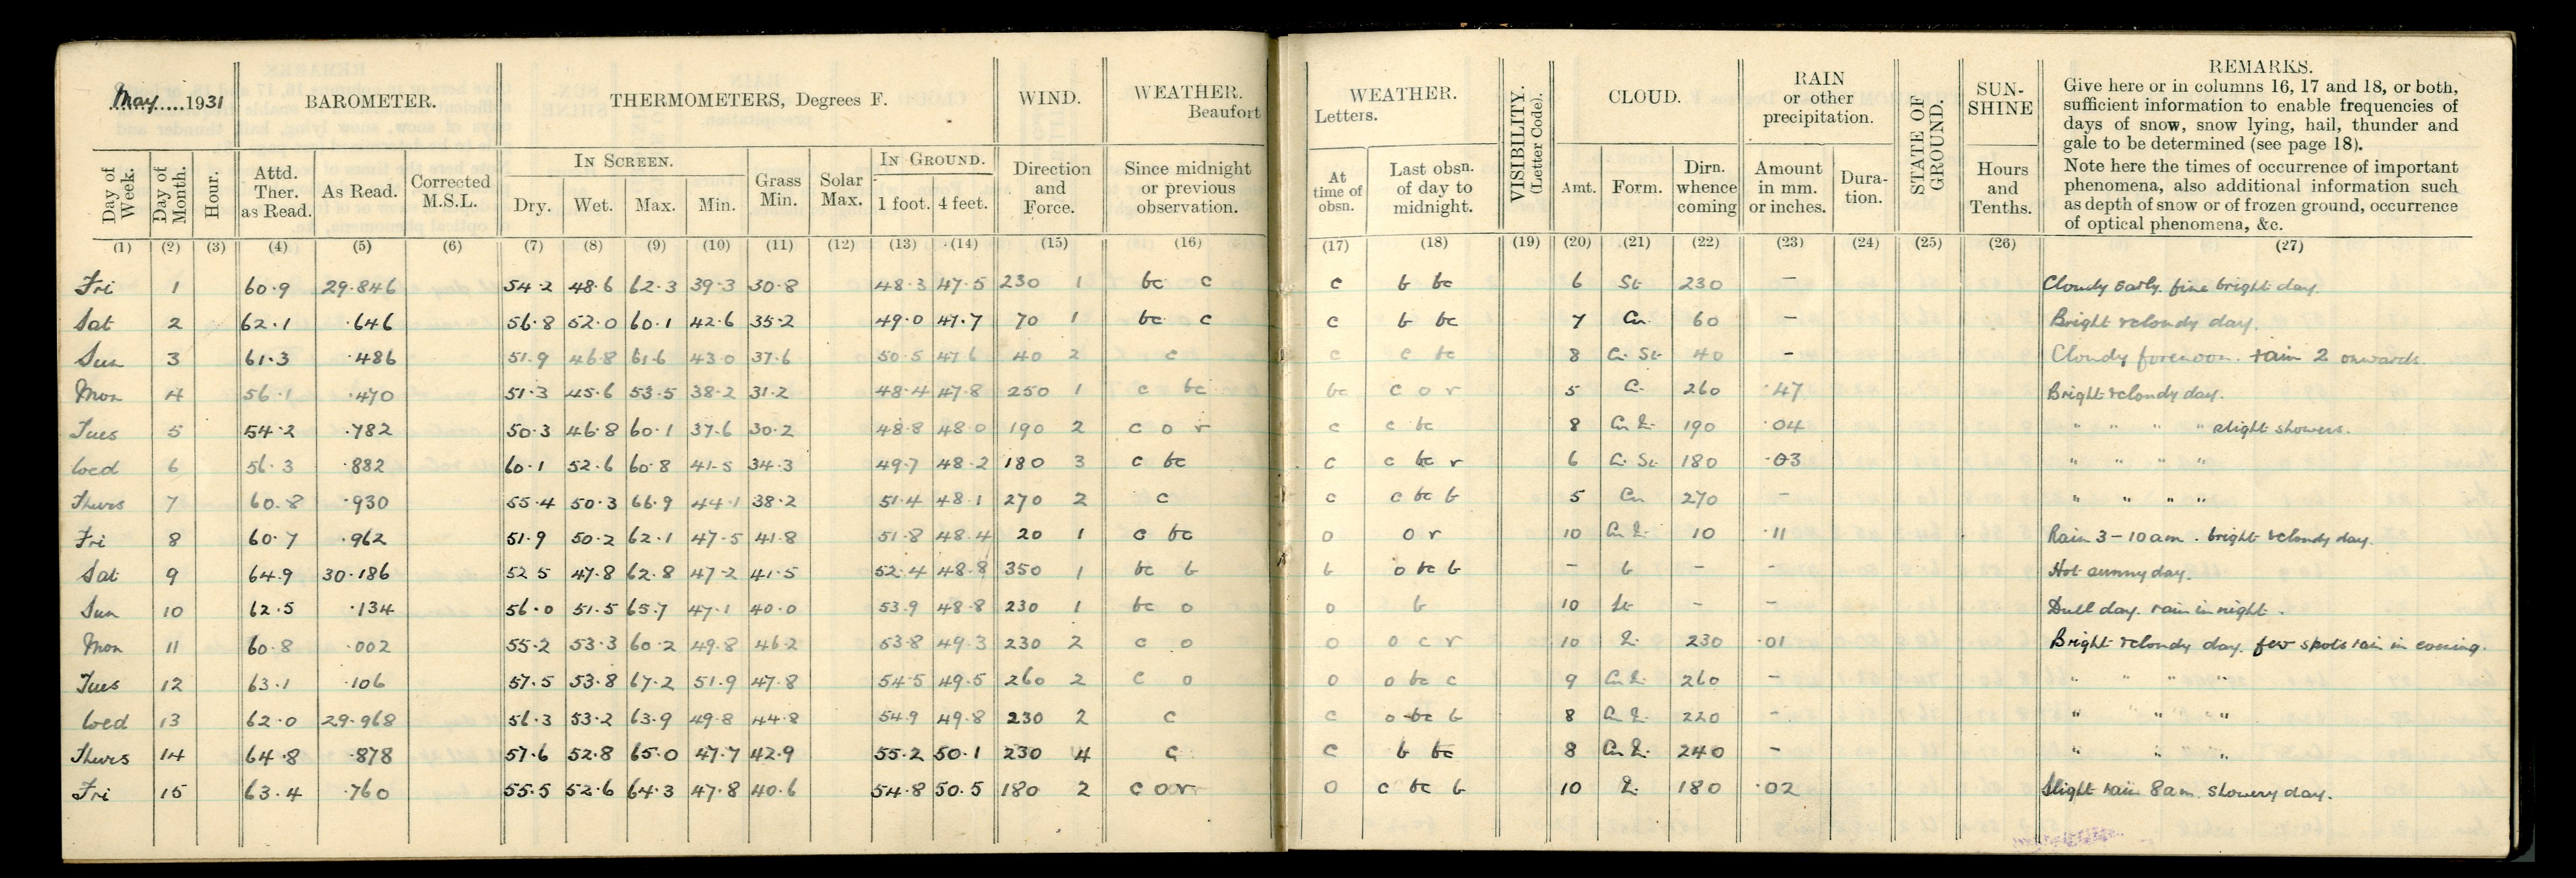 May 1931 BAROMETER. THERMOMETERS, Degrees F. WIND. WEATHER. Beaufort
Day of Week. Day of Month. Hour. Attd. Ther. as Read. As Read. Corrected M.S.L. IN SCREEN. Dry. Wet. Max. Min. Grass Min. Solar Max. IN GROUND. 1 foot. 4 feet. Direction and Force. Since midnight or previous observation.
(1) (2) (3) (4) (5) (6) (7) (8) (9) (10) (11) (12) (13) (14) (15) (16)
Fri 1 60.9 29.846 54.2 48.6 62.3 39.3 30.8 48.3 47.5 230 1 bc c
Sat 2 62.1 .646 56.8 52.0 60.1 42.6 35.2 49.0 47.7 70 1 bc c
Sun 3 61.3 .486 51.9 46.8 61.6 43.0 37.6 50.5 47.6 40 2 c
Mon 4 56.1 .470 51.3 45.6 53.5 38.2 31.2 48.4 47.8 250 1 c bc
Tues 5 54.2 .782 50.3 46.8 60.1 37.6 30.2 48.8 48.0 190 2 c o r
Wed 6 56.3 .882 60.1 52.6 60.8 41.5 34.3 49.7 48.2 180 3 c bc
Thurs 7 60.8 .930 55.4 50.3 66.9 44.1 38.2 51.4 48.1 270 2 c
Fri 8 60.7 .962 51.9 50.2 62.1 47.5 41.8 51.8 48.4 20 1 c bc
Sat 9 64.9 30.186 52.5 47.8 62.8 47.2 41.5 52.4 48.8 350 1 bc b
Sun 10 62.5 .134 56.0 51.5 65.7 47.1 40.0 53.9 48.8 230 1 bc o
Mon 11 60.8 .002 55.2 53.3 60.2 49.8 46.2 53.8 49.3 230 2 c o
Tues 12 63.1 .106 57.5 53.8 67.2 51.9 47.8 54.5 49.5 260 2 c o
Wed 13 62.0 29.968 56.3 53.2 63.9 49.8 44.8 54.9 49.8 230 2 c
Thurs 14 64.8 .878 57.6 52.8 65.0 47.7 42.9 55.2 50.1 230 4 c
Fri 15 63.4 .760 55.5 52.6 64.3 47.8 40.6 54.8 50.5 180 2 c o r
WEATHER. Letters. VISIBILITY. (Letter Code). CLOUD. RAIN or other precipitation. STATE OF GROUND. SUN-SHINE REMARKS.
Give here or in columns 16, 17 and 18, or both,
sufficient information to enable frequencies of
days of snow, snow lying, hail, thunder and
gale to be determined (see page 18).
Note here the times of occurrence of important
phenomena, also additional information such
as depth of snow or of frozen ground, occurrence
of optical phenomena, &c.
At time of obsn. Last obsn. of day to midnight. Amt. Form. Dirn. whence coming Amount in mm. or inches. Dura-tion. Hours and Tenths.
(17) (18) (19) (20) (21) (22) (23) (24) (25) (26) (27)
c b bc 6 St 230 - Cloudy early. fine bright day.
c b bc 7 Cu 60 - Bright & cloudy day.
c c bc 8 Cu St 40 - Cloudy forenoon. rain 2 onwards
bc c o r 5 Cu 260 .47 Bright & cloudy day.
c c bc 8 Cu 190 .04 " " " " slight showers.
c c bc r 6 Cu St 180 .03 " " " "
c c bc b 5 Cu 270 - " " " "
o o r 10 Cu 10 .11 Rain 3-10 am. bright & cloudy day.
b o bc b - b - - Hot sunny day.
o b 10 St - - Dull day. rain in night.
o o c r 10 230 .01 Bright & cloudy day. few spots rain in evening.
o o bc c 9 Cu 260 - " " " "
c o bc b 8 Cu 220 - " " "
c b bc 8 Cu 240 - " " "
o c bc b 10 180 .02 Slight rain 8am. showery day.